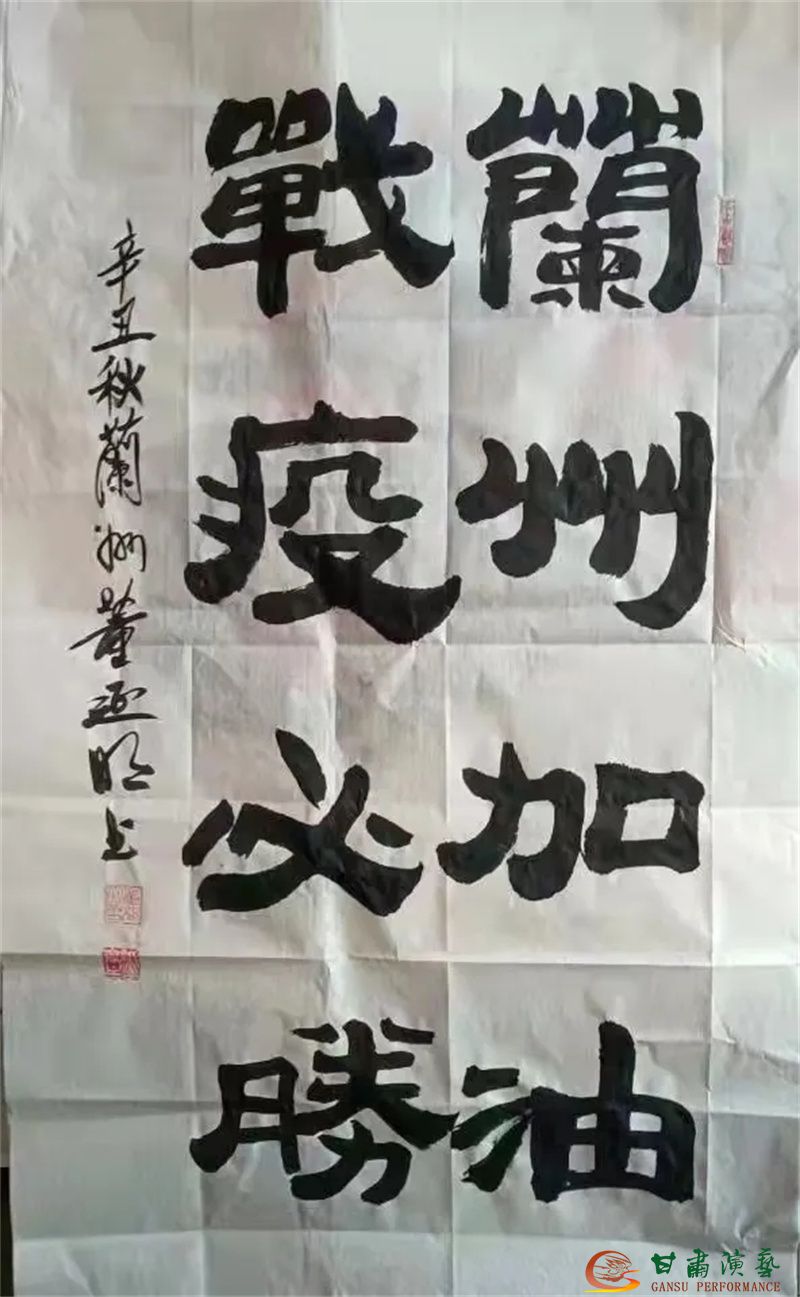 蘭州加油
戰疫必勝
辛丑秋蘭洲董延明书
甘肅演藝
GANSU PERFORMANCE